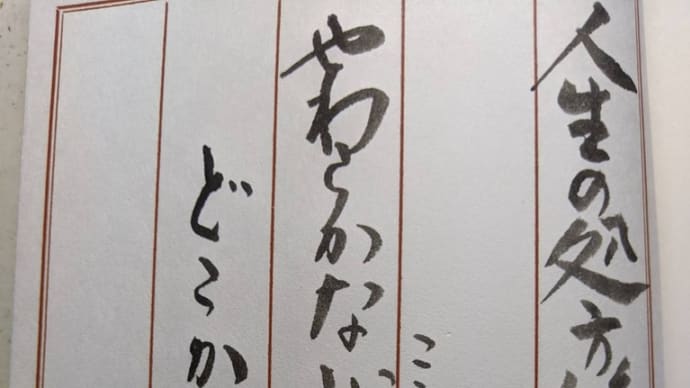 人生の処方
こ
やわらかな
どこか